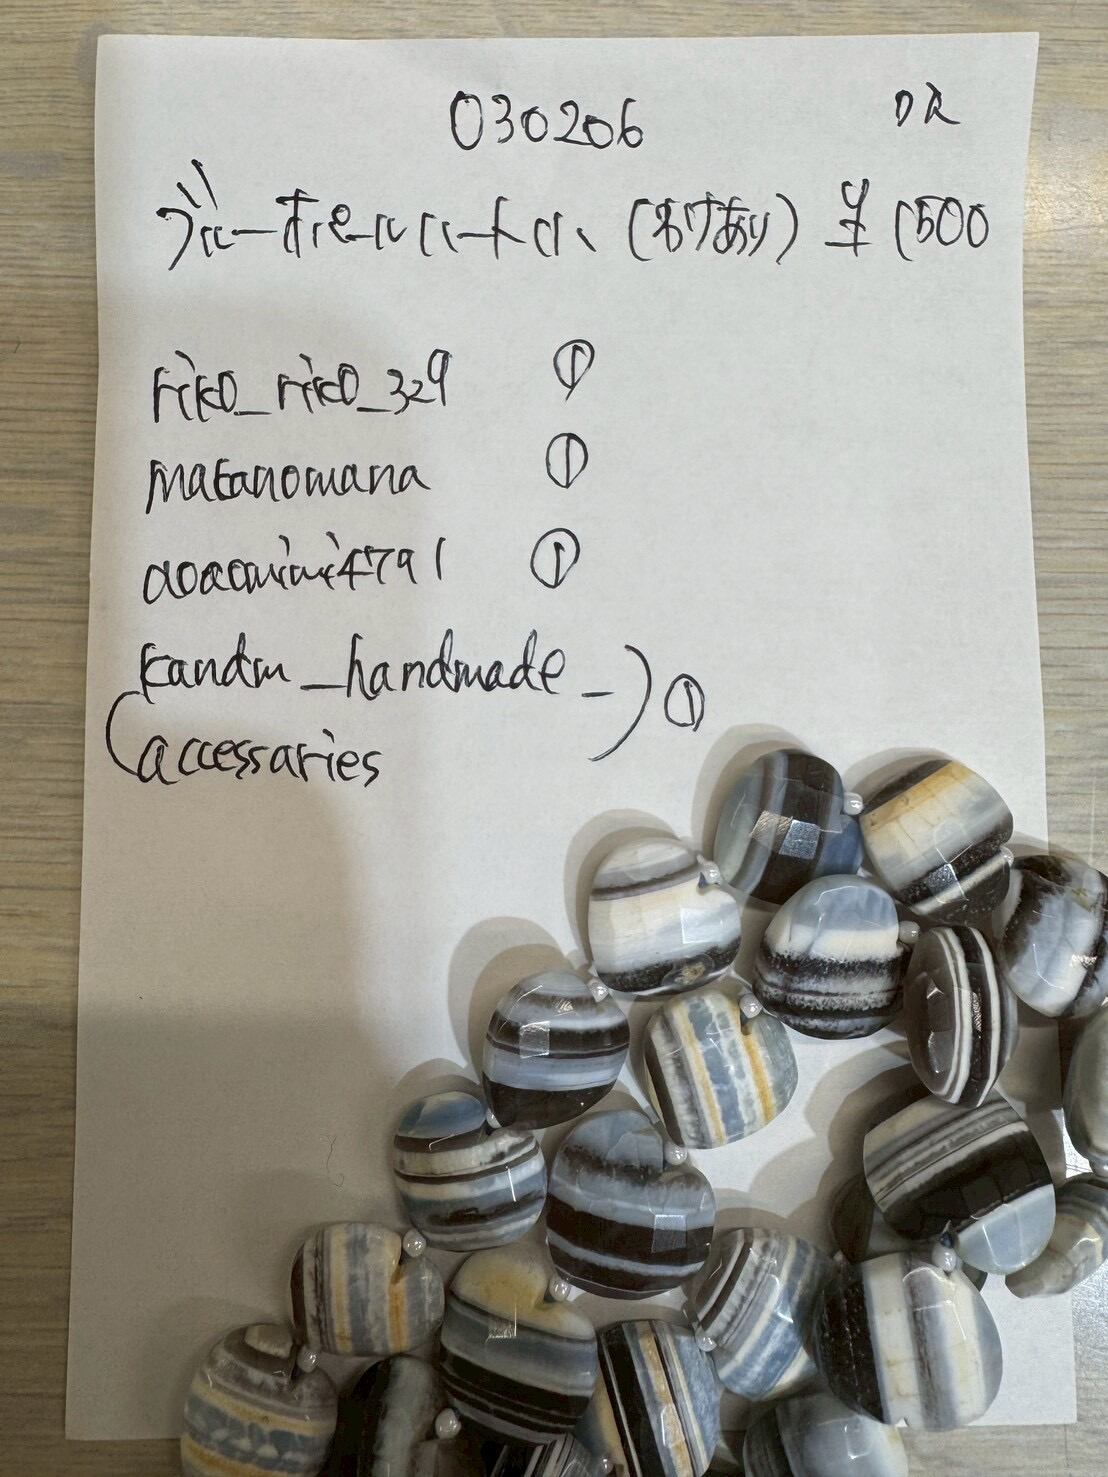 030206
DR
ブルーオパールハートロス (わけあり) ¥1500
riko_riko_329 ①
matanomana ①
aoaomimi4791 ①
(kandm_handmade_) ①
accessaries